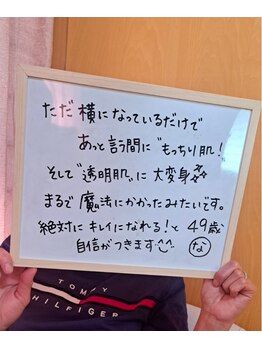 ただ横になっているだけで
あっと言う間に"もっちり肌!
そして"透明肌"に大変身
まるで魔法にかかったみたいです。
絶対にキレイになれる!と 49歳
自信がつきます^^ な
TOMMY
HILFIGER